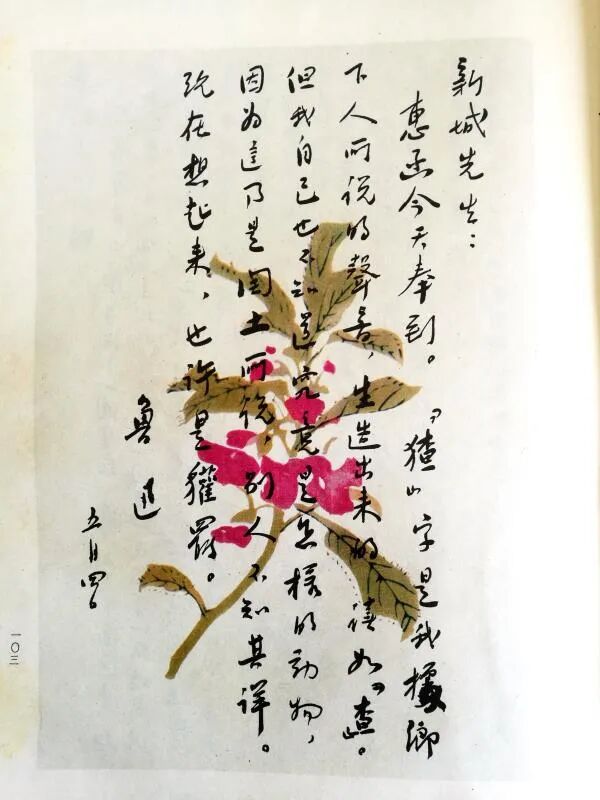 新城先生：
惠函今天奉到。『猹』字是我據鄉
下人所说的聲音，生造出来的，读如『查』。
但我自己也不知道究竟是怎樣的動物，
因为這乃是闰土所说，别人不知其详。
现在想起来，也许是獾罢。
魯迅
五月四日
一〇三